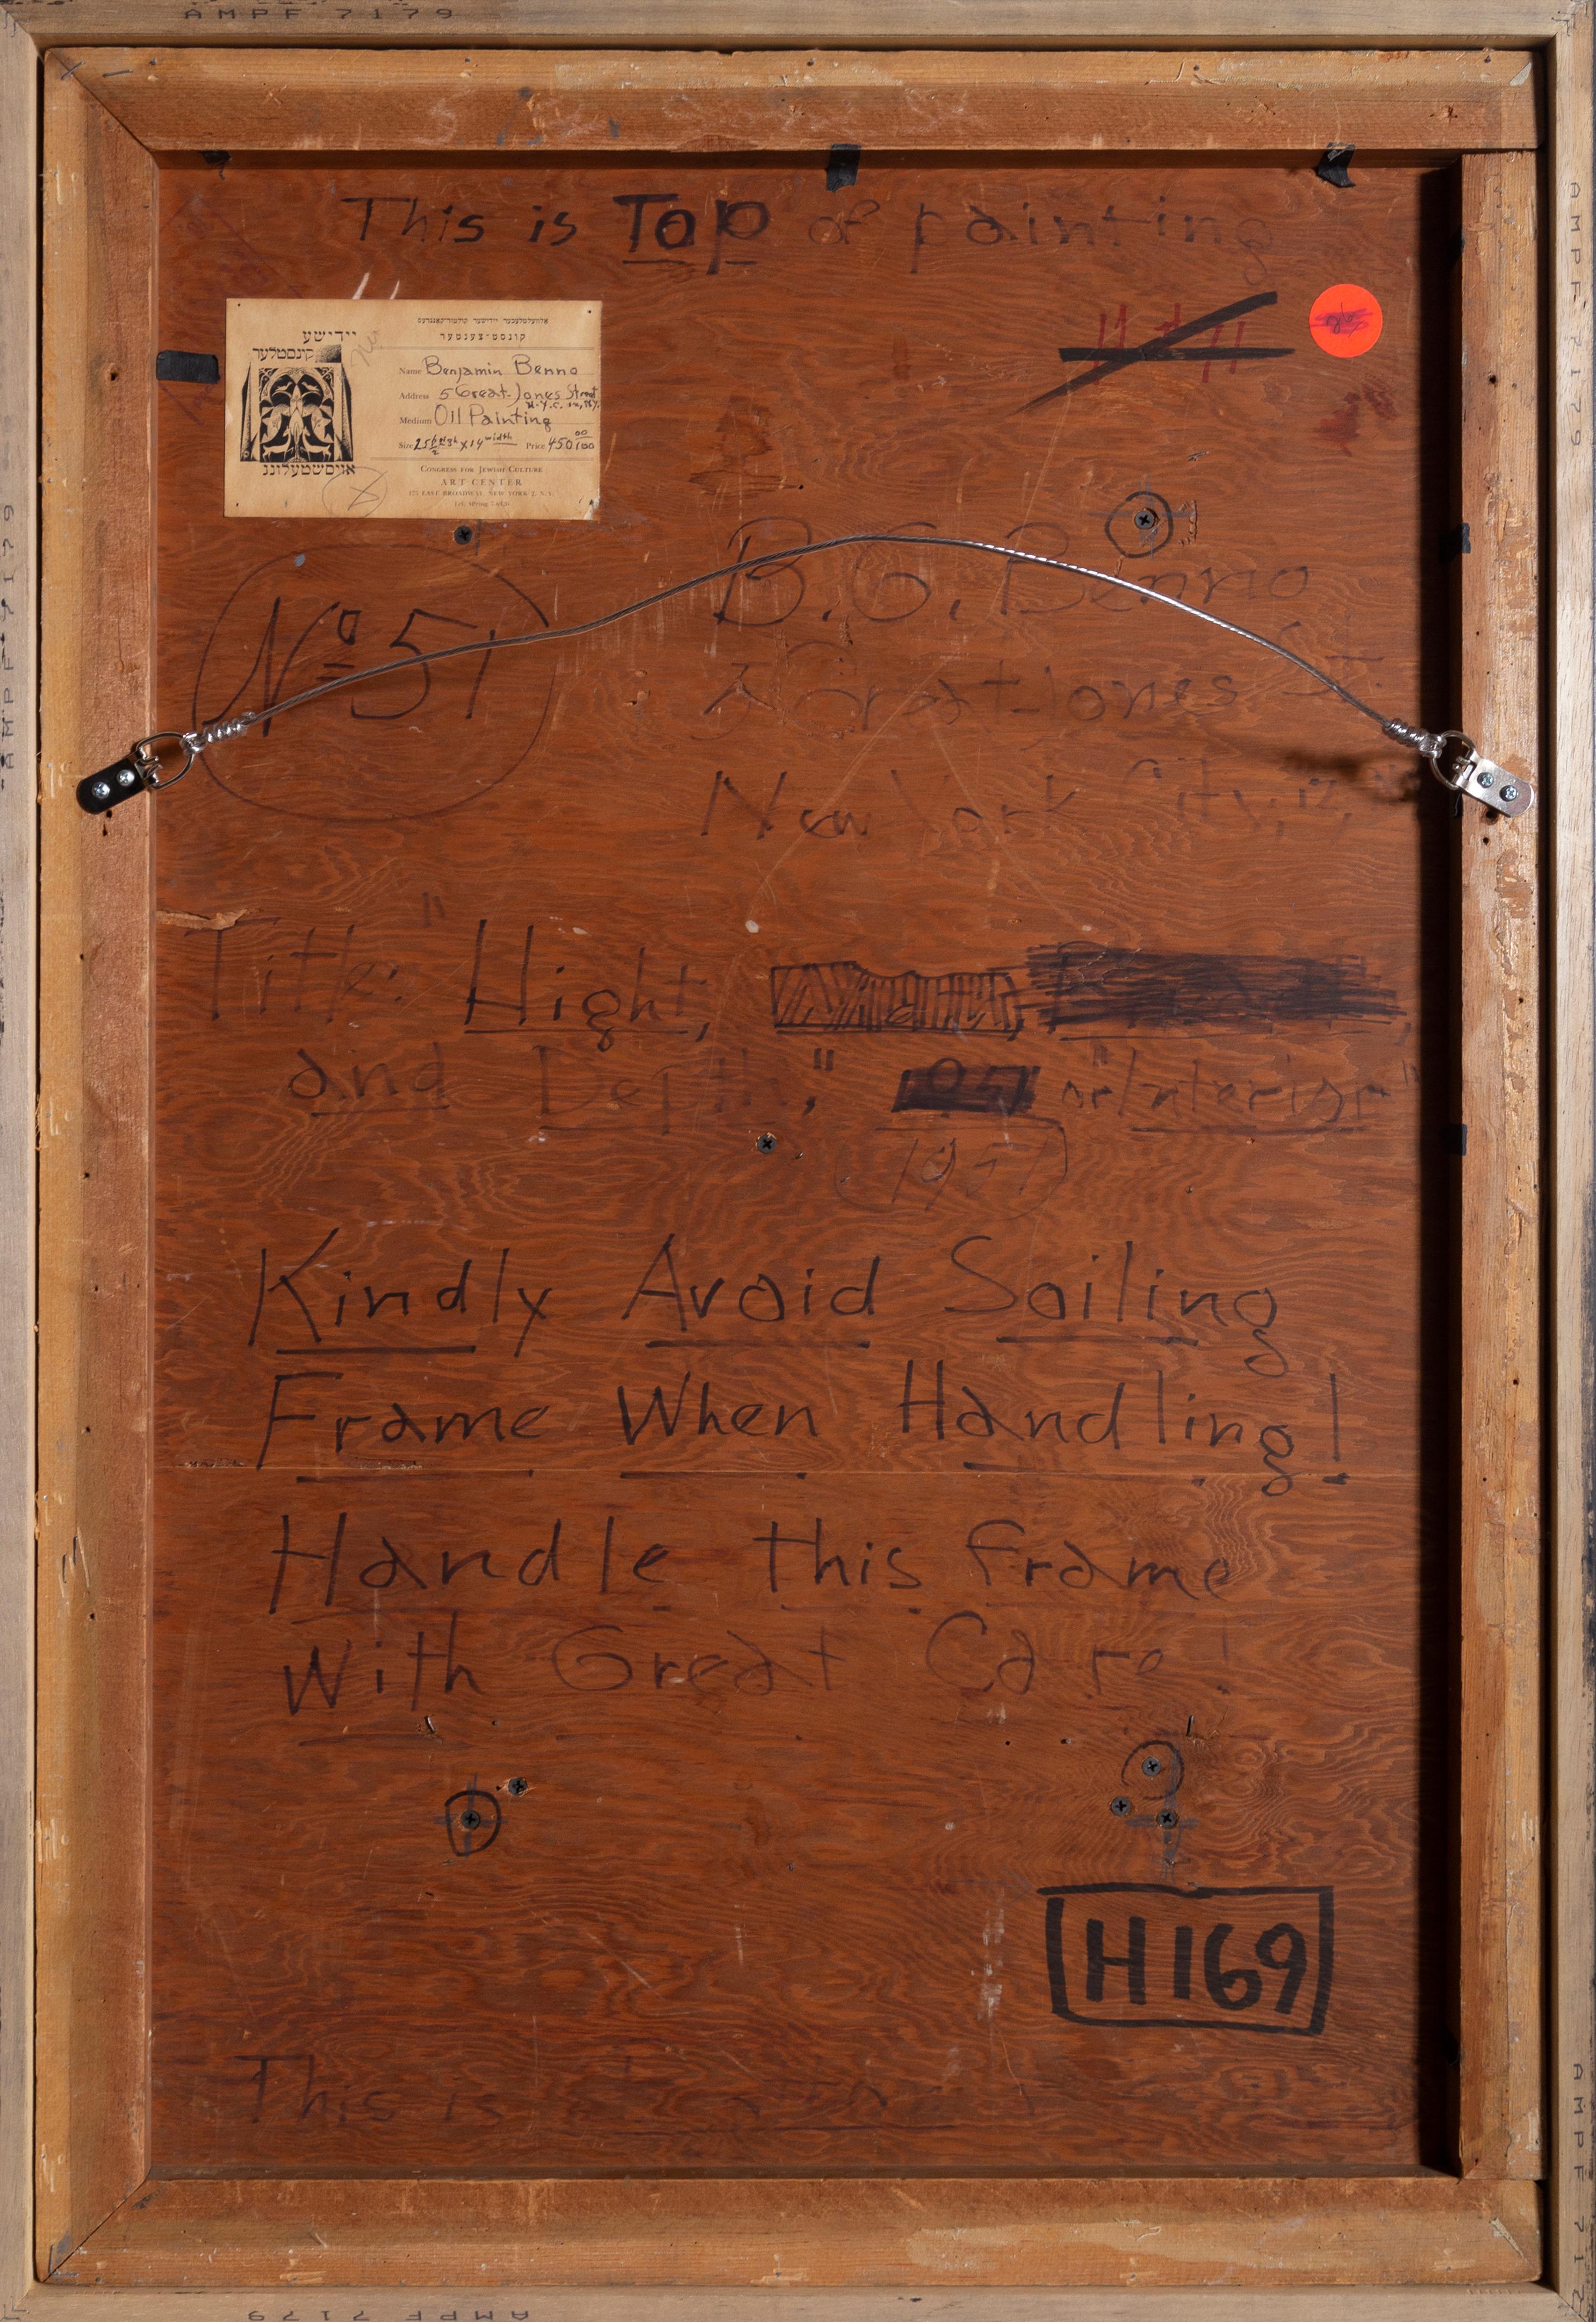 AMPF 7179
This is Top of painting
אלוועלטלעכער יידישער קולטור-קאנגרעס
קונסט-צענטער
יידישע
קינסטלער
אויסשטעלונג
Name Benjamin Benno
Address 5 Great-Jones Street
N.Y.C.
Medium Oil Painting
Size 25 1/2 high x 14 width Price 450 00/100
Congress for Jewish Culture
ART CENTER
175 EAST BROADWAY, NEW YORK 2, N.Y.
Nº 51
B.G. Benno
Great-Jones St.
New York City, 12,
Title: "Hight,
and Depth," or "Interior"
Kindly Avoid Soiling
Frame When Handling!
Handle this frame
With Great Care!
H169
This is
AMPF 7179
AMPF 7179
AMPF 7179